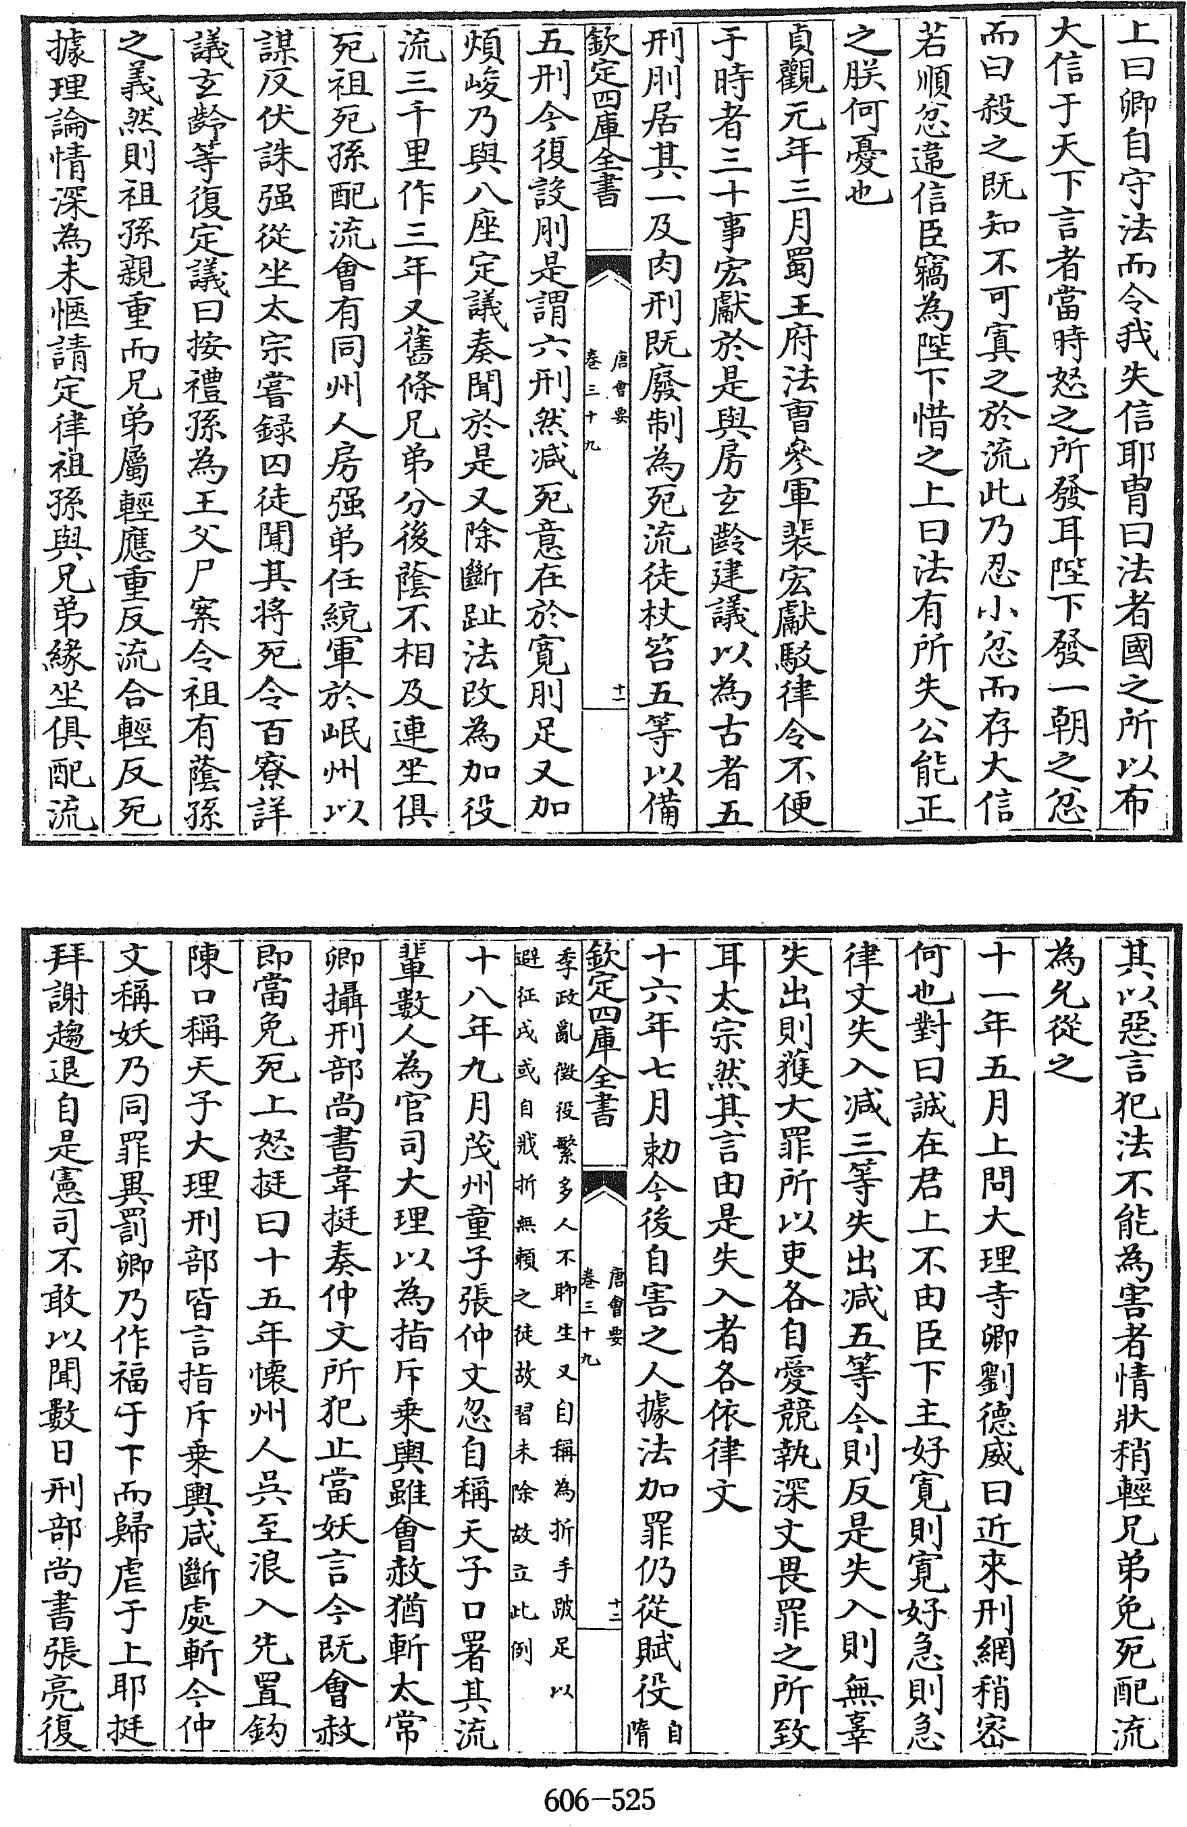 上曰卿自守法而令我失信耶胄曰法者國之所以布
大信于天下言者當時怒之所發耳陛下發一朝之忿
而曰殺之既知不可寘之於流此乃忍小忿而存大信
若順忿違信臣竊為陛下惜之上曰法有所失公能正
之朕何憂也
貞觀元年三月蜀王府法曹參軍裴宏獻駁律令不便
于時者三十事宏獻於是與房玄齡建議以為古者五
刑刖居其一及肉刑既廢制為死流徒杖笞五等以備
欽定四庫全書
唐會要
卷三十九
十一
五刑今復設刖是謂六刑然减死意在於寛刖足又加
煩峻乃與八座定議奏聞於是又除斷趾法改為加役
流三千里作三年又舊條兄弟分後蔭不相及連坐俱
死祖死孫配流會有同州人房强弟任統軍於岷州以
謀反伏誅强從坐太宗嘗録囚徒聞其將死令百寮詳
議玄齡等復定議曰按禮孫為王父尸案令祖有蔭孫
之義然則祖孫親重而兄弟屬輕應重反流合輕反死
據理論情深為未愜請定律祖孫與兄弟緣坐俱配流
其以惡言犯法不能為害者情狀稍輕兄弟免死配流
為允從之
十一年五月上問大理寺卿劉德威曰近來刑網稍宻
何也對曰誠在君上不由臣下主好寛則寛好急則急
律文失入减三等失出减五等今則反是失入則無辜
失出則獲大罪所以吏各自愛競執深文畏罪之所致
耳太宗然其言由是失入者各依律文
十六年七月勅今後自害之人據法加罪仍從賦役自隋
欽定四庫全書
唐會要
卷三十九
十二
季政亂徴役繁多人不聊生又自稱為折手跛足以
避征戍或自戕折無賴之徒故習未除故立此例
十八年九月茂州童子張仲文忽自稱天子口署其流
輩數人為官司大理以為指斥乗輿雖會赦猶斬太常
卿攝刑部尚書韋挺奏仲文所犯止當妖言今既會赦
即當免死上怒挺曰十五年懷州人吳至浪入先置鈎
陳口稱天子大理刑部皆言指斥乗輿咸斷處斬今仲
文稱妖乃同罪異罰卿乃作福于下而歸虐于上耶挺
拜謝趨退自是憲司不敢以聞數日刑部尚書張亮復
606-525